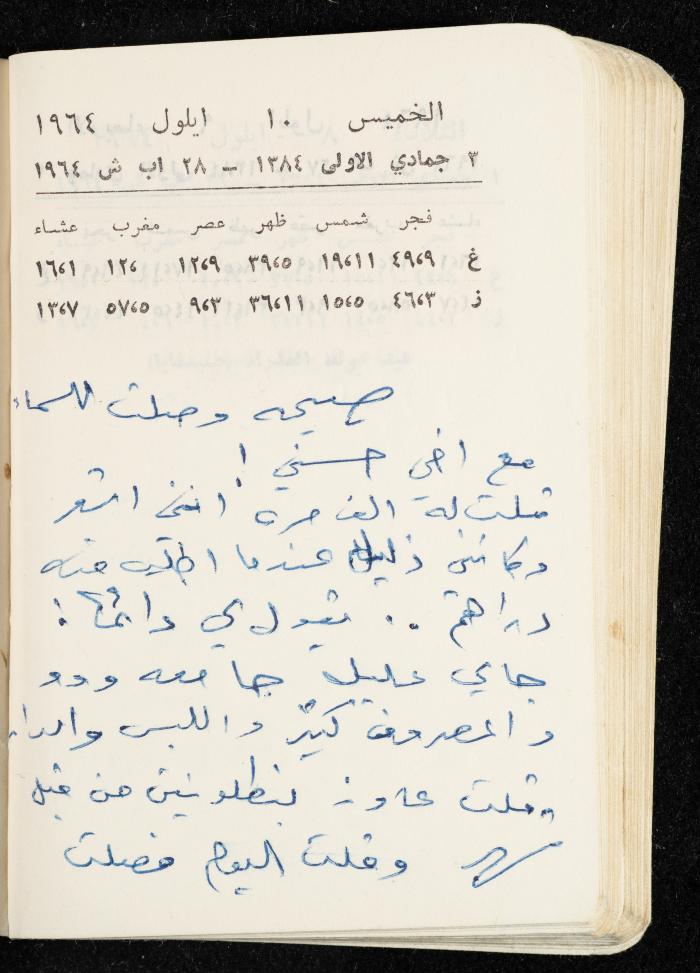 الخميس ١٠ ايلول ١٩٦٤
٣ جمادي الاولى ١٣٨٤ – ٢٨ اب ش ١٩٦٤
فجر شمس ظهر عصر مغرب عشاء
غ ٤٩،٩ ١٩،١١ ٣٩،٥ ١٢،٩ ١٢، ١٦،١
ز ٤٦،٣ ١٥،٥ ٣٦،١١ ٩،٣ ٥٧،٥ ١٣،٧
صيحه وصلت للسماء
مع اخي حسني !
قلت له الف مره انني اشعر
وكأنني ذليل عندما اطلب منه
دراهم .. يقول لي دائماً :
جاي عليك جامعه
والمصروف كثير واللبس
وقلت عاوز بنطلونين من قبل
شهر وقلت اليوم فصلت